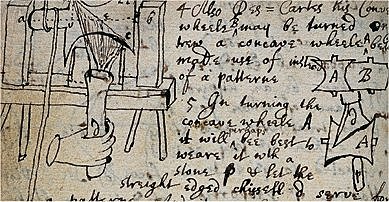 4 Also Des = Cartes his Conv
wheele B may be turned
a concave wheele
made use of instead
of a patterne
5. In turning the
concave wheele A
it will perhaps bee best to
weare it wth a
stone & let the
streight edged chisell serve
a patterne
a
b
c
e
A
B
A
A